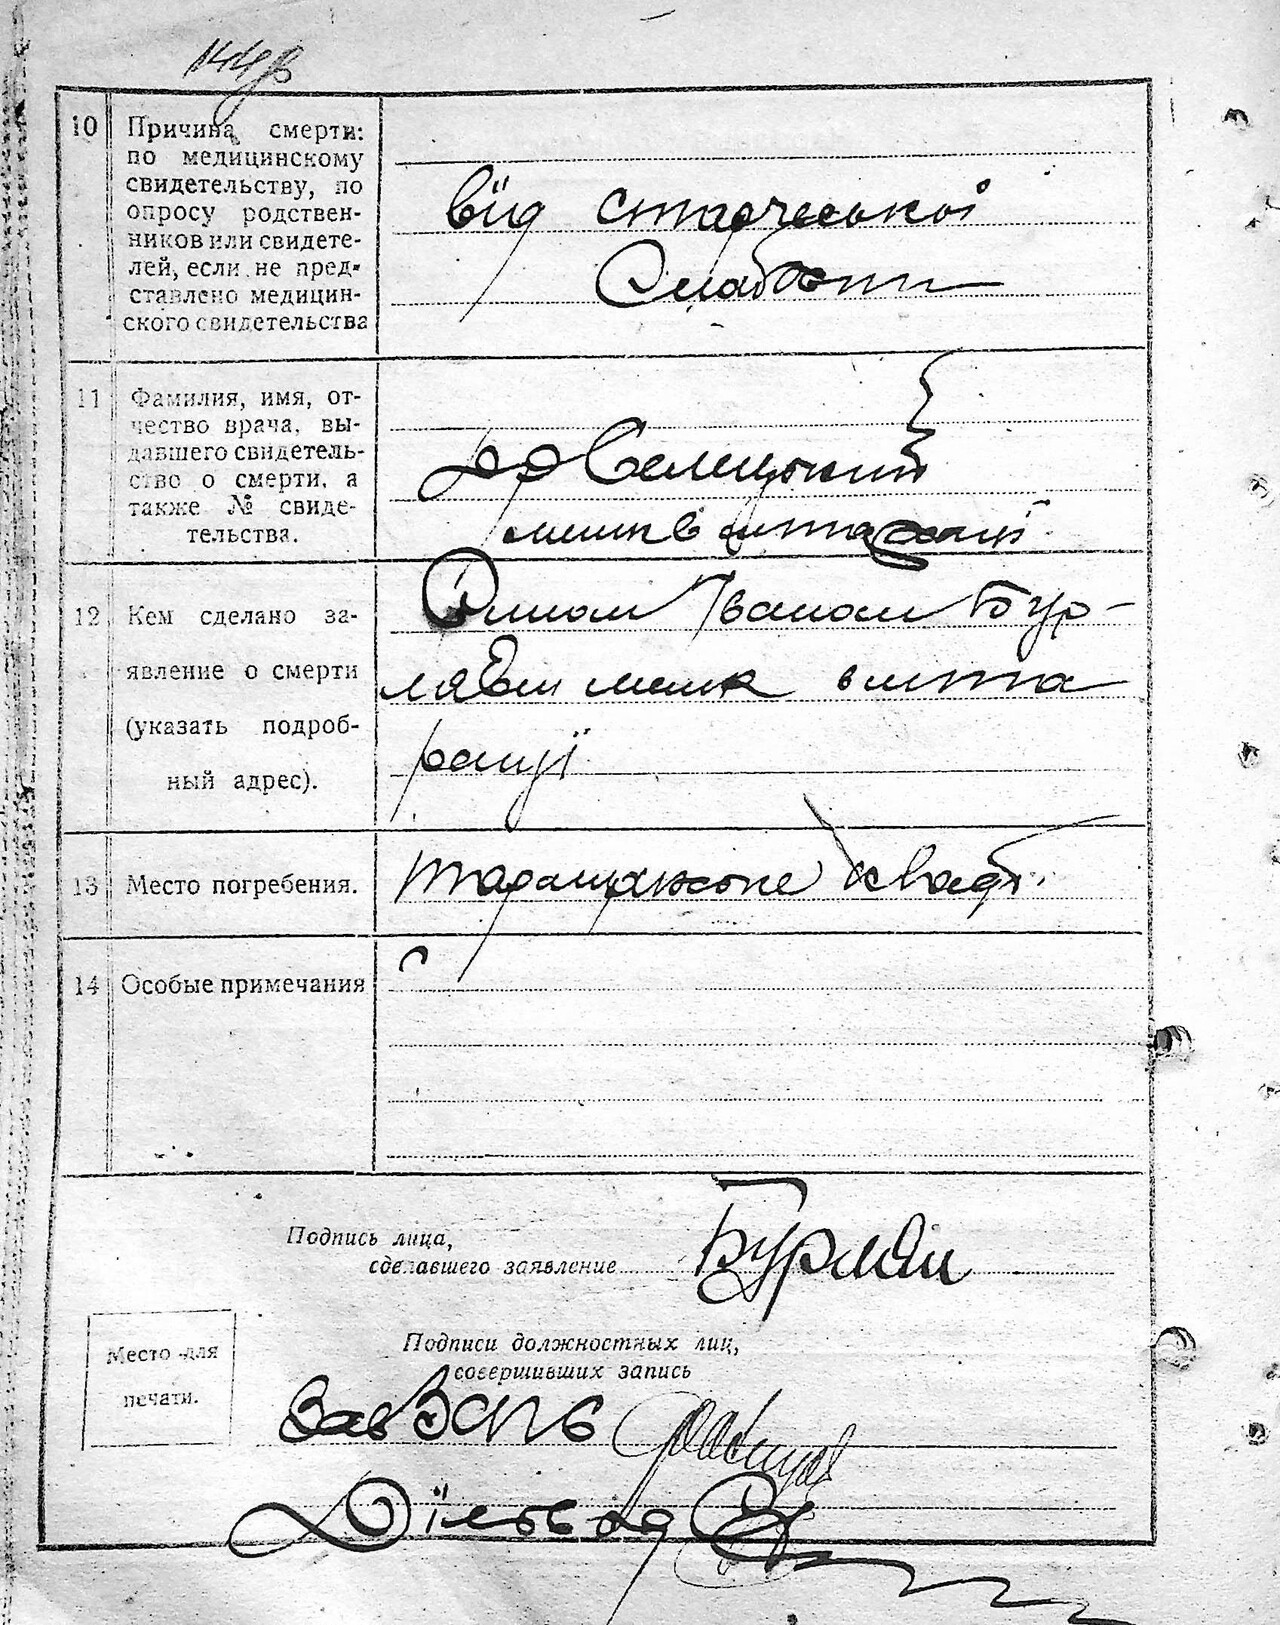 144
10 Причина смерти:
по медицинскому
свидетельству, по
опросу родствен-
ников или свидете-
лей, если не пред-
ставлено медицин-
ского свидетельства
від старческої
слабости
11 Фамилия, имя, от-
чество врача, вы-
давшего свидетель-
ство о смерти, а
также № свиде-
тельства.
12 Кем сделано за-
явление о смерти
(указать подроб-
ный адрес).
Сином Іваном Бур-
мешк в мта
ращі
13 Место погребения.
Таращанське кладб.
14 Особые примечания
Подпись лица,
сделавшего заявление
Подписи должностных лиц,
совершивших запись
Место для
печати.
Зав ЗАГС
Діловод